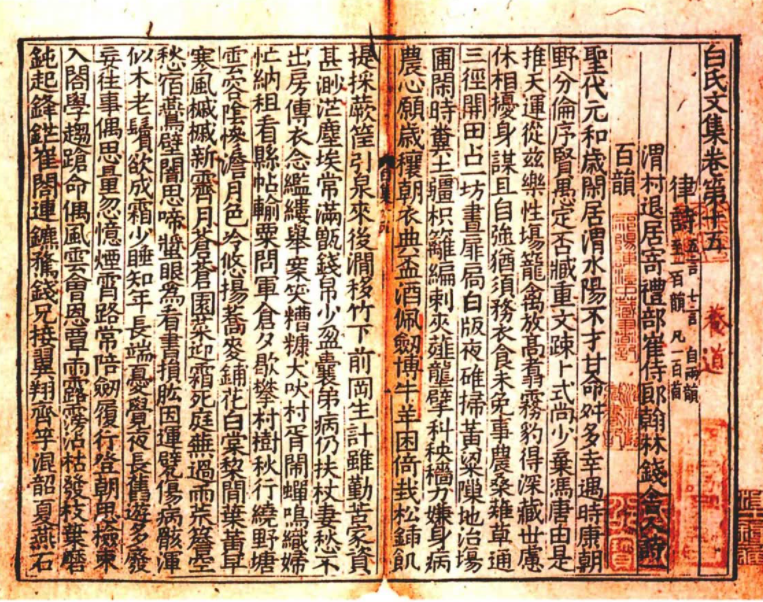 白氏文集卷第十五
律詩 五言 七言 自兩韻至一百韻 凡一百首
渭村退居寄禮部崔侍郎翰林錢舍人詩
百韻
聖代元和歲閑居渭水陽不才甘命舛多幸遇時康朝
野分倫序賢愚定否臧重文疎卜式尚少棄馮唐由是
推天運從茲樂性場籠禽放高翥霧豹得深藏世慮
休相擾身謀且自強猶須務衣食未免事農桑薙草通
三徑開田占一坊晝扉扃白版夜碓掃黃粱隟地治場
圃閑時糞土疆枳籬編刺夾薤壟擘科秧穡力嫌身病
農心願歲穰朝衣典盃酒佩劒博牛羊困倚栽松鍤飢
提採蕨筐引泉來後澗移竹下前岡生計雖勤苦家資
甚渺茫塵埃常滿甑錢帛少盈囊弟病仍扶杖妻愁不
出房傳衣念繿縷舉案笑糟糠犬吠村胥鬧蟬鳴織婦
忙納租看縣帖輸粟問軍倉夕歇攀村樹秋行繞野塘
雲容陰慘澹月色冷悠揚蕎麥鋪花白棠梨間葉黃早
寒風槭槭新霽月蒼蒼園菜迎霜死庭蕪過雨荒簷空
愁宿鷰壁闇思啼螿眼爲看書損肱因運甓傷病骸渾
似木老鬢欲成霜少睡知年長端憂覺夜長舊遊多廢
忘往事偶思量忽憶煙霄路常陪劒履行登朝思檢束
入閤學趨蹌命偶風雲會恩覃雨露霶沾枯發枝葉磨
鈍起鋒鋩崔閣連鑣騖錢兄接翼翔齊竽混韶夏燕石